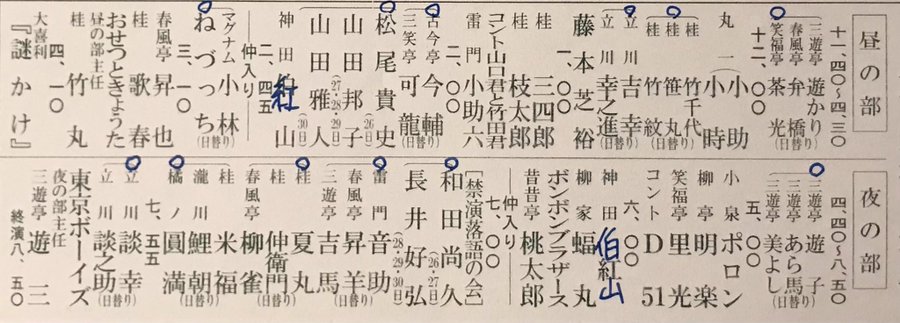 昼の部
十一、四〇〜四、三〇
三遊亭 遊かり
春風亭 弁橋(日替り)
笑福亭 茶光
十二、〇〇
丸一 小助
小時
桂 竹千代
桂 笹丸(日替り)
桂 竹紋
立川 吉幸
立川 幸之進(日替り)
一、〇〇
藤本 芝裕
桂 三四郎
桂 枝太郎
コント山口君と竹田君
二、〇〇
雷門 小助六
古今亭 今輔
三笑亭 可龍(日替り)
松尾 貴史(26日)
山田 邦子(27・28・29日)
山田 雅人(30日)
二、四五
神田 紅山
仲入り
マグナム小林
ねづっち(日替り)
三、一〇
春風亭 昇也
桂 歌春
おせつときょうた
昼の部主任
桂 竹丸
四、一〇
大喜利
『謎かけ』
夜の部
四、四〇〜八、五〇
三遊亭 遊子
三遊亭 あら馬(日替り)
三遊亭 美よし
五、〇〇
小泉 ポロン
柳亭 明楽
笑福亭 里光
コント D51
六、〇〇
神田 伯山
紅
柳家 蝠丸
ボンボンブラザース
昔昔亭 桃太郎
仲入り
七、〇〇
〔禁演落語の会〕
和田 尚久(26・27日)
長井 好弘(28・29・30日)
雷門 音助
春風亭 昇羊(日替り)
三遊亭 吉馬
桂 夏丸
桂 仲衛門(日替り)
春風亭 柳雀
桂 米福
瀧川 鯉朝(日替り)
橘ノ 圓満
七、五五
立川 談幸
立川 談之助(日替り)
東京ボーイズ
夜の部主任
三遊亭 遊三
終演八、五〇